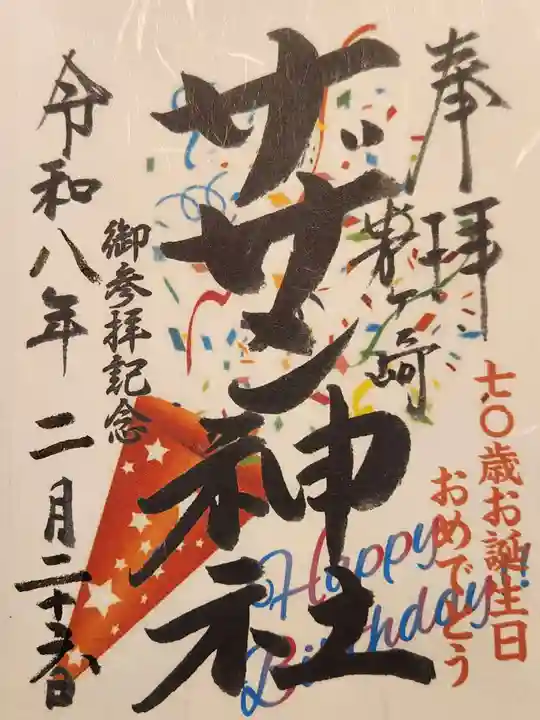 奉拝
七〇歳お誕生日
おめでとう
茅ヶ崎
サザン神社
御参拝記念
令和八年二月二十六日
Happy
Birthday!